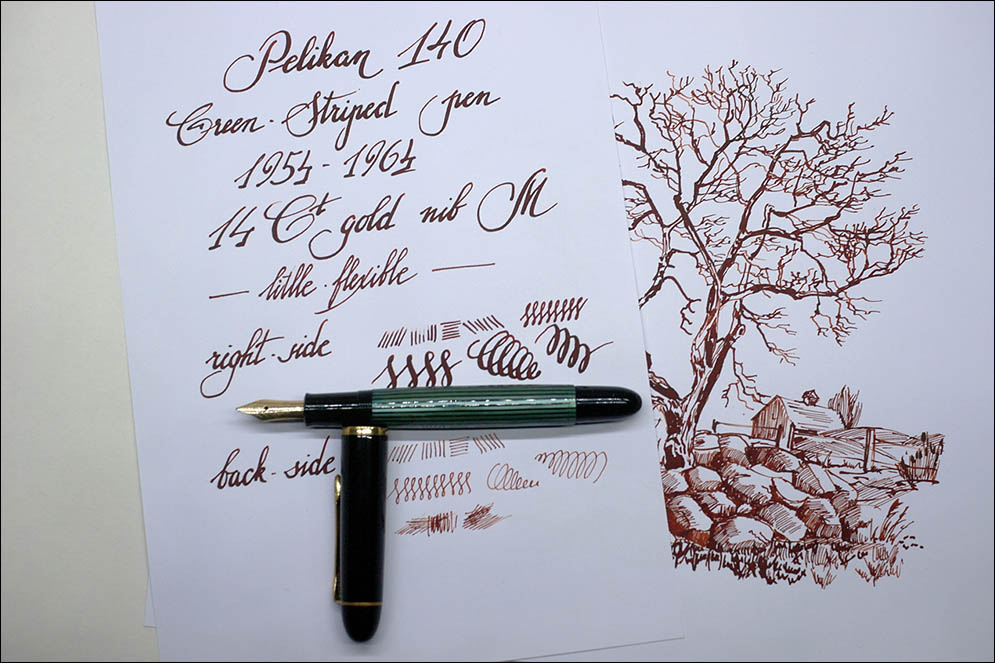 Pelikan 140
Green-Striped pen
1954-1964
14 Ct gold nib M
— little-flexible —
right-side
back-side